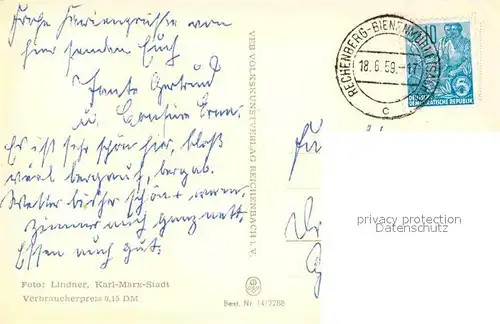 Frohe Feriengrüße von
hier senden Euch
Tante Gertrud
u.
Es ist sehr schön hier, bloß
viel bergauf, bergab.
Wetter bisher schön + warm.
Zimmer auch ganz nett.
Essen auch gut.
Foto: Lindner, Karl-Marx-Stadt
Verbraucherpreis 0,15 DM
VEB VOLKSKUNSTVERLAG REICHENBACH I. V.
Best. Nr. 14/7788
RECHENBERG-BIENENMÜHLE
18.6.59.-17
c
10
DEUTSCHE
DEMOKRATISCHE REPUBLIK
5
privacy protection
VDMedien24.de